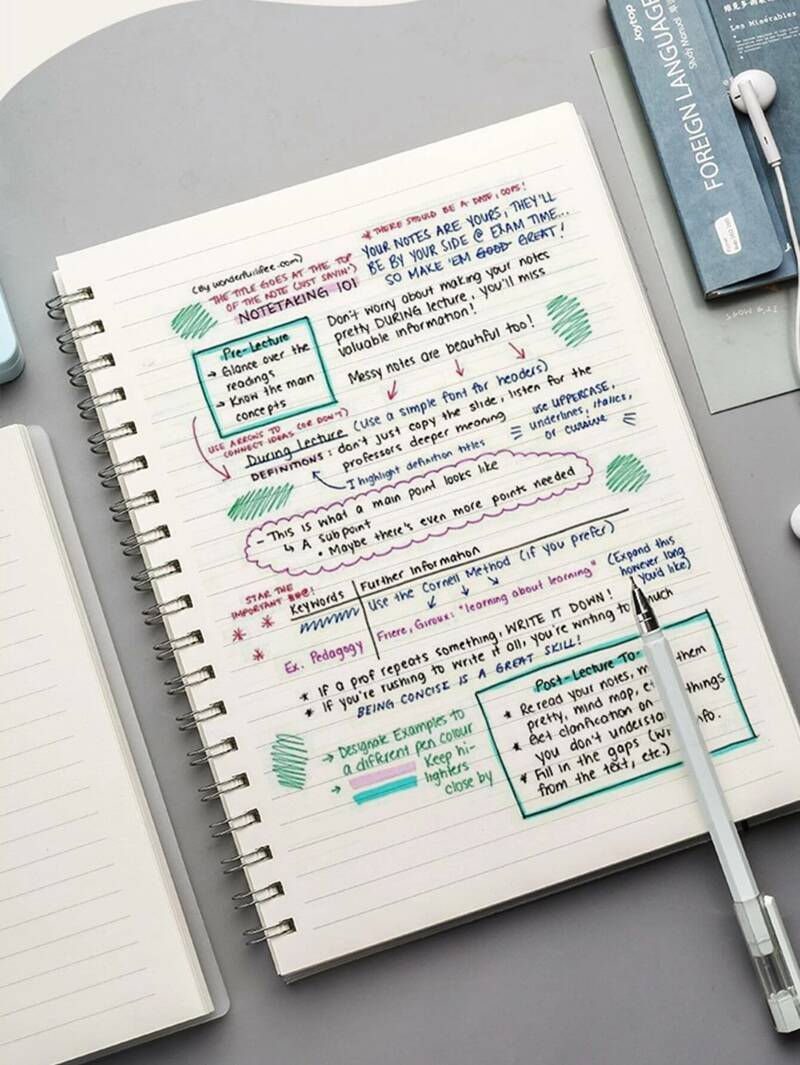 * THERE SHOULD BE A DATE, OOPS!
YOUR NOTES ARE YOURS, THEY'LL
BE BY YOUR SIDE @ EXAM TIME...
SO MAKE 'EM GOOD GREAT!
THE TITLE GOES AT THE TOP
OF THE NOTE (JUST SAYIN')
NOTETAKING 101
Don't worry about making your notes
pretty DURING lecture, you'll miss
valuable information!
Messy notes are beautiful too!
Pre-Lecture
→ Glance over the
readings
→ Know the main
concepts
USE ARROWS TO
CONNECT IDEAS (OR DON'T)
During lecture (use a simple font for headers)
DEFINITIONS: don't just copy the slide, listen for the
professors deeper meaning
I highlight definition titles
use UPPERCASE,
underlines, italics,
or cursive
- This is what a main point looks like
↳ A subpoint
• Maybe there's even more points needed
STAR THE
IMPORTANT
Keywords
Further Information
Use the Cornell Method (if you prefer)
(Expand this
however long
you'd like)
Ex. Pedagogy
Friere, Giroux: "learning about learning"
* If a prof repeats something, WRITE IT DOWN!
* If you're rushing to write it all, you're writing to much
BEING CONCISE IS A GREAT SKILL!
→ Designate Examples to
a different pen colour
→ Keep hi-
lighters
close by
Post-Lecture To-
* Reread your notes, them
pretty, mind map, things
* Get clarification on
you don't info.
* Fill in the gaps
from the text, etc.)
Joytop
FOREIGN LANGUAGE
Study Manual
Les Misérables